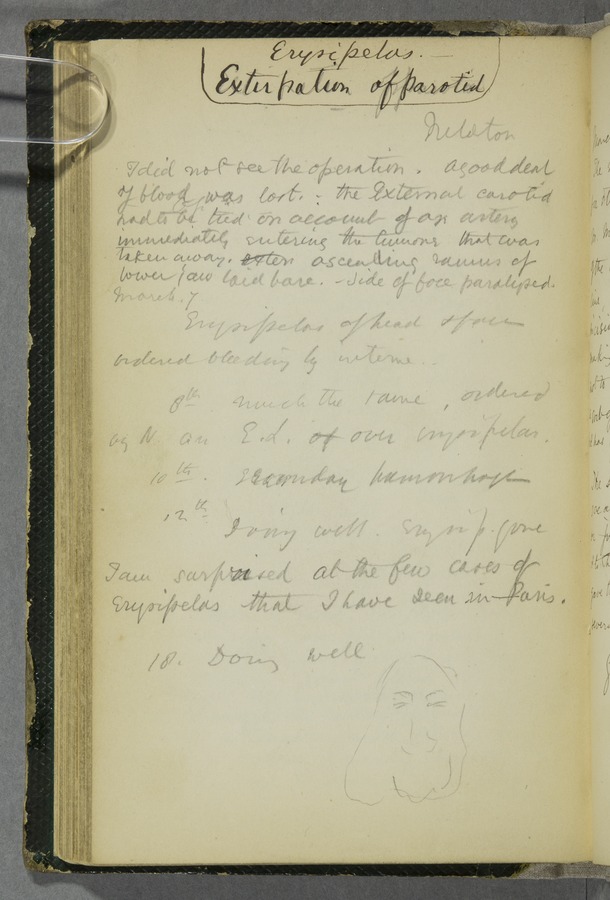 Erysipelas. —
Extirpation of Parotid
Nelaton
I did not see the operation. A good deal
of blood was lost. : the External carotid
had to be tied on account of an artery
immediately entering the tumour that was
taken away. exten ascending ramus of
lower jaw laid bare. - Side of face paralysed.
March. 7
Erysipelas of head & face
ordered bleeding by interne..
8th much the same, ordered
ag N. an E.L. of over erysipelas.
10th. Secondary hemorrhage
12th
Doing well. Erysip. gone
I am surprised at the few cases of
Erysipelas that I have seen in Paris.
18. Doing well